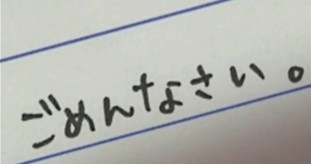 ごめんなさい。